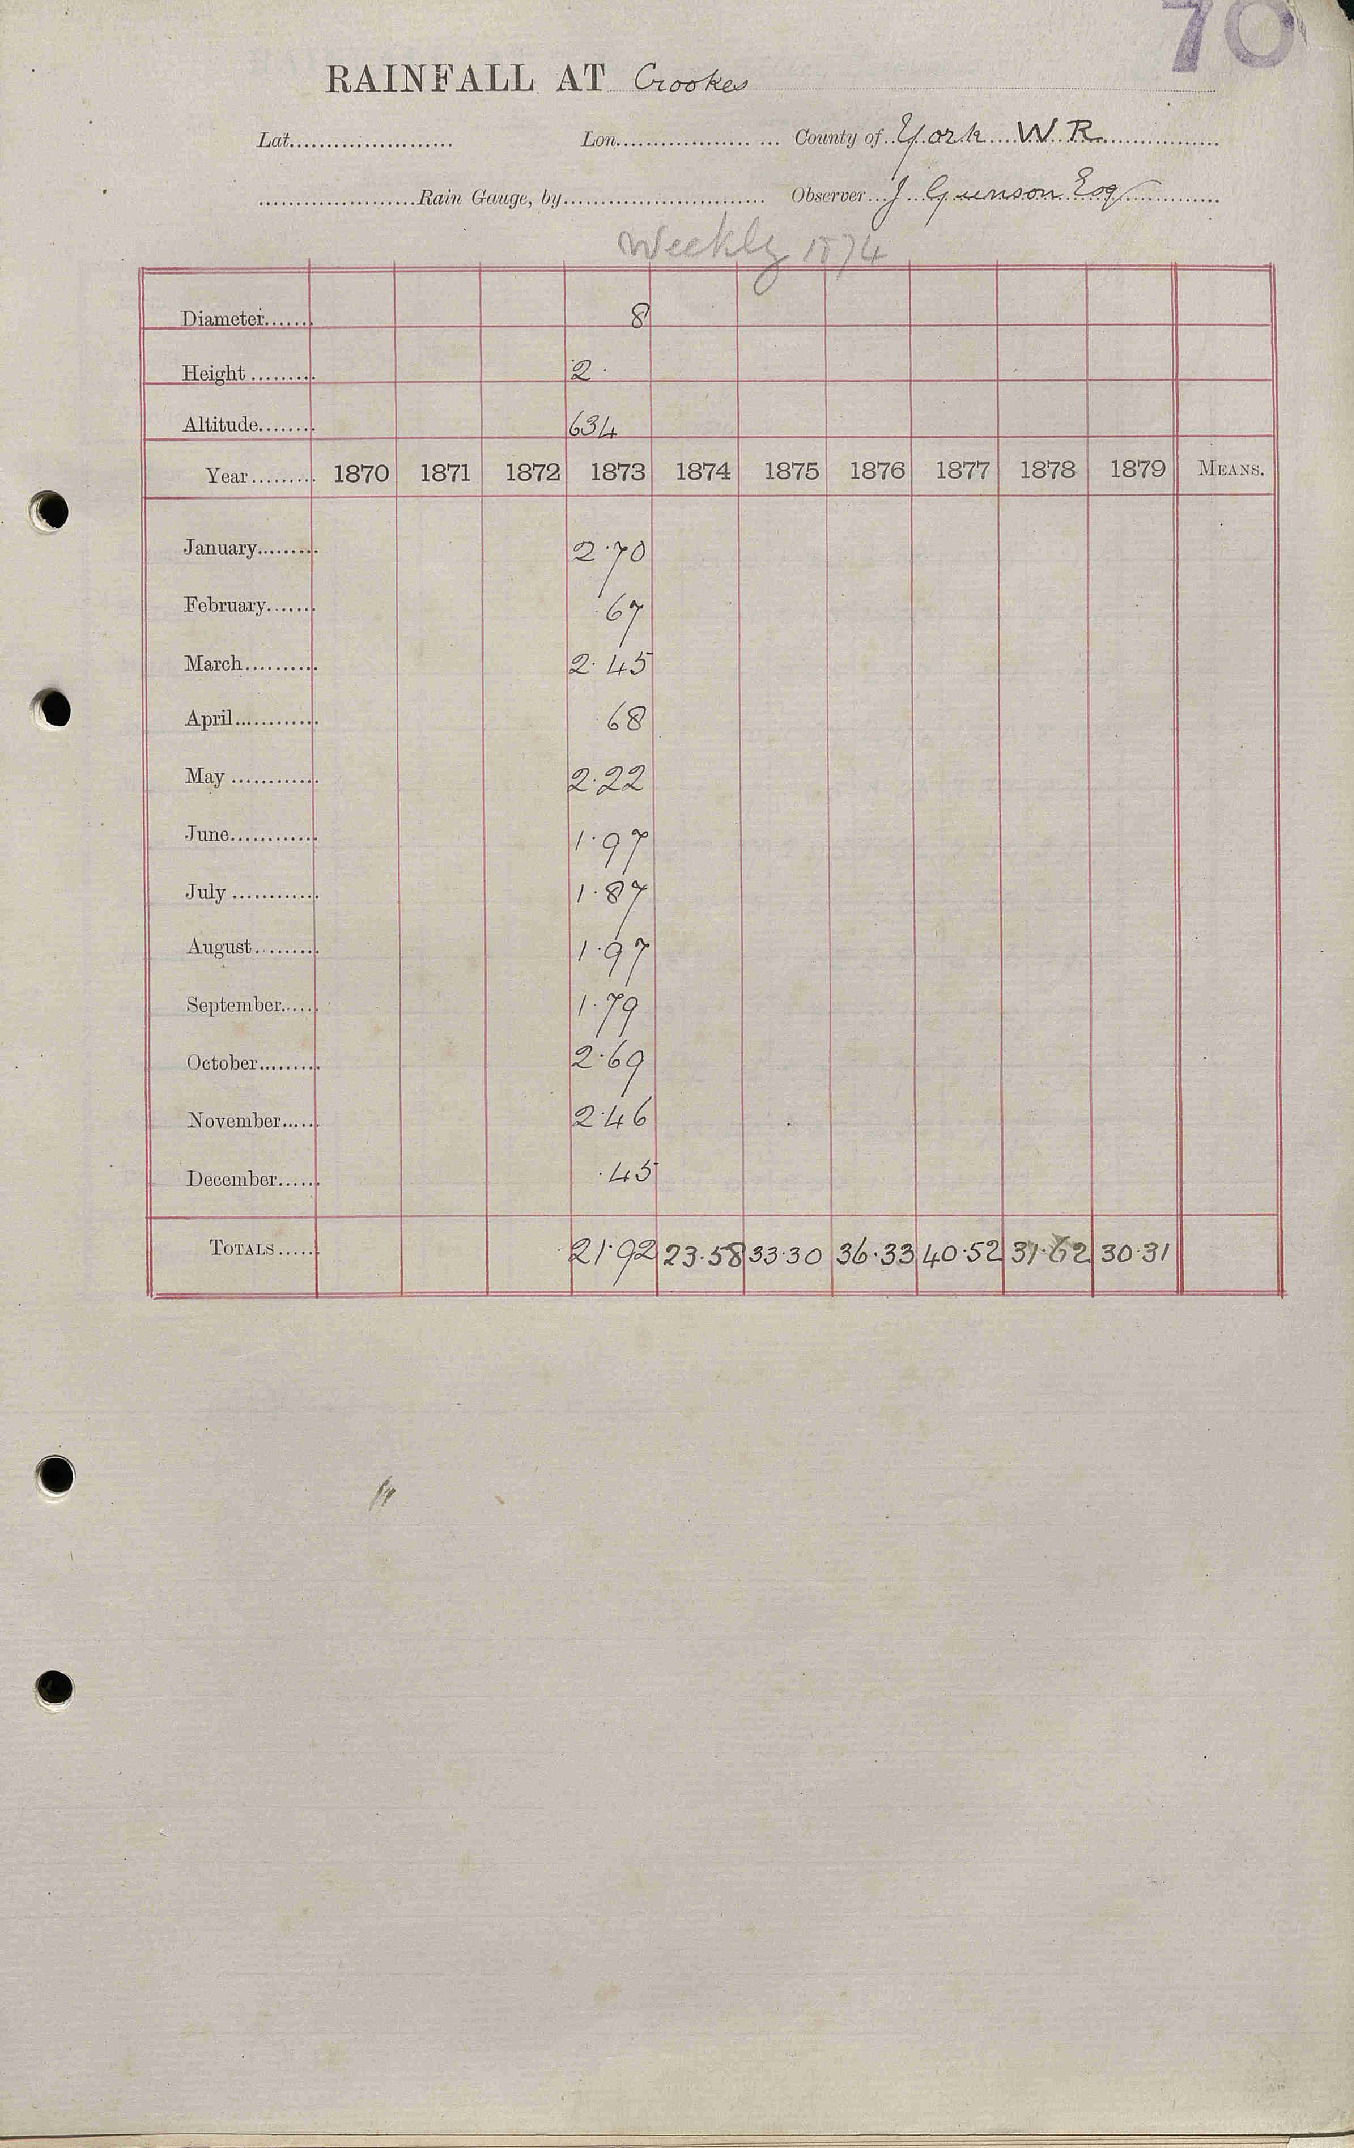 70
RAINFALL AT Crookes
Lat...................... Lon.................. ... County of York W.R.
.....................Rain Gauge, by........................... Observer J Gunson Esq
Weekly 1874
Diameter....... 8
Height ......... 2.
Altitude........ 634
Year......... 1870 1871 1872 1873 1874 1875 1876 1877 1878 1879 MEANS.
January......... 2.70
February....... .67
March.......... 2.45
April............ .68
May ............ 2.22
June............ 1.97
July ............ 1.87
August......... 1.97
September...... 1.79
October......... 2.69
November...... 2.46
December...... .45
TOTALS...... 21.92 23.58 33.30 36.33 40.52 31.62 30.31